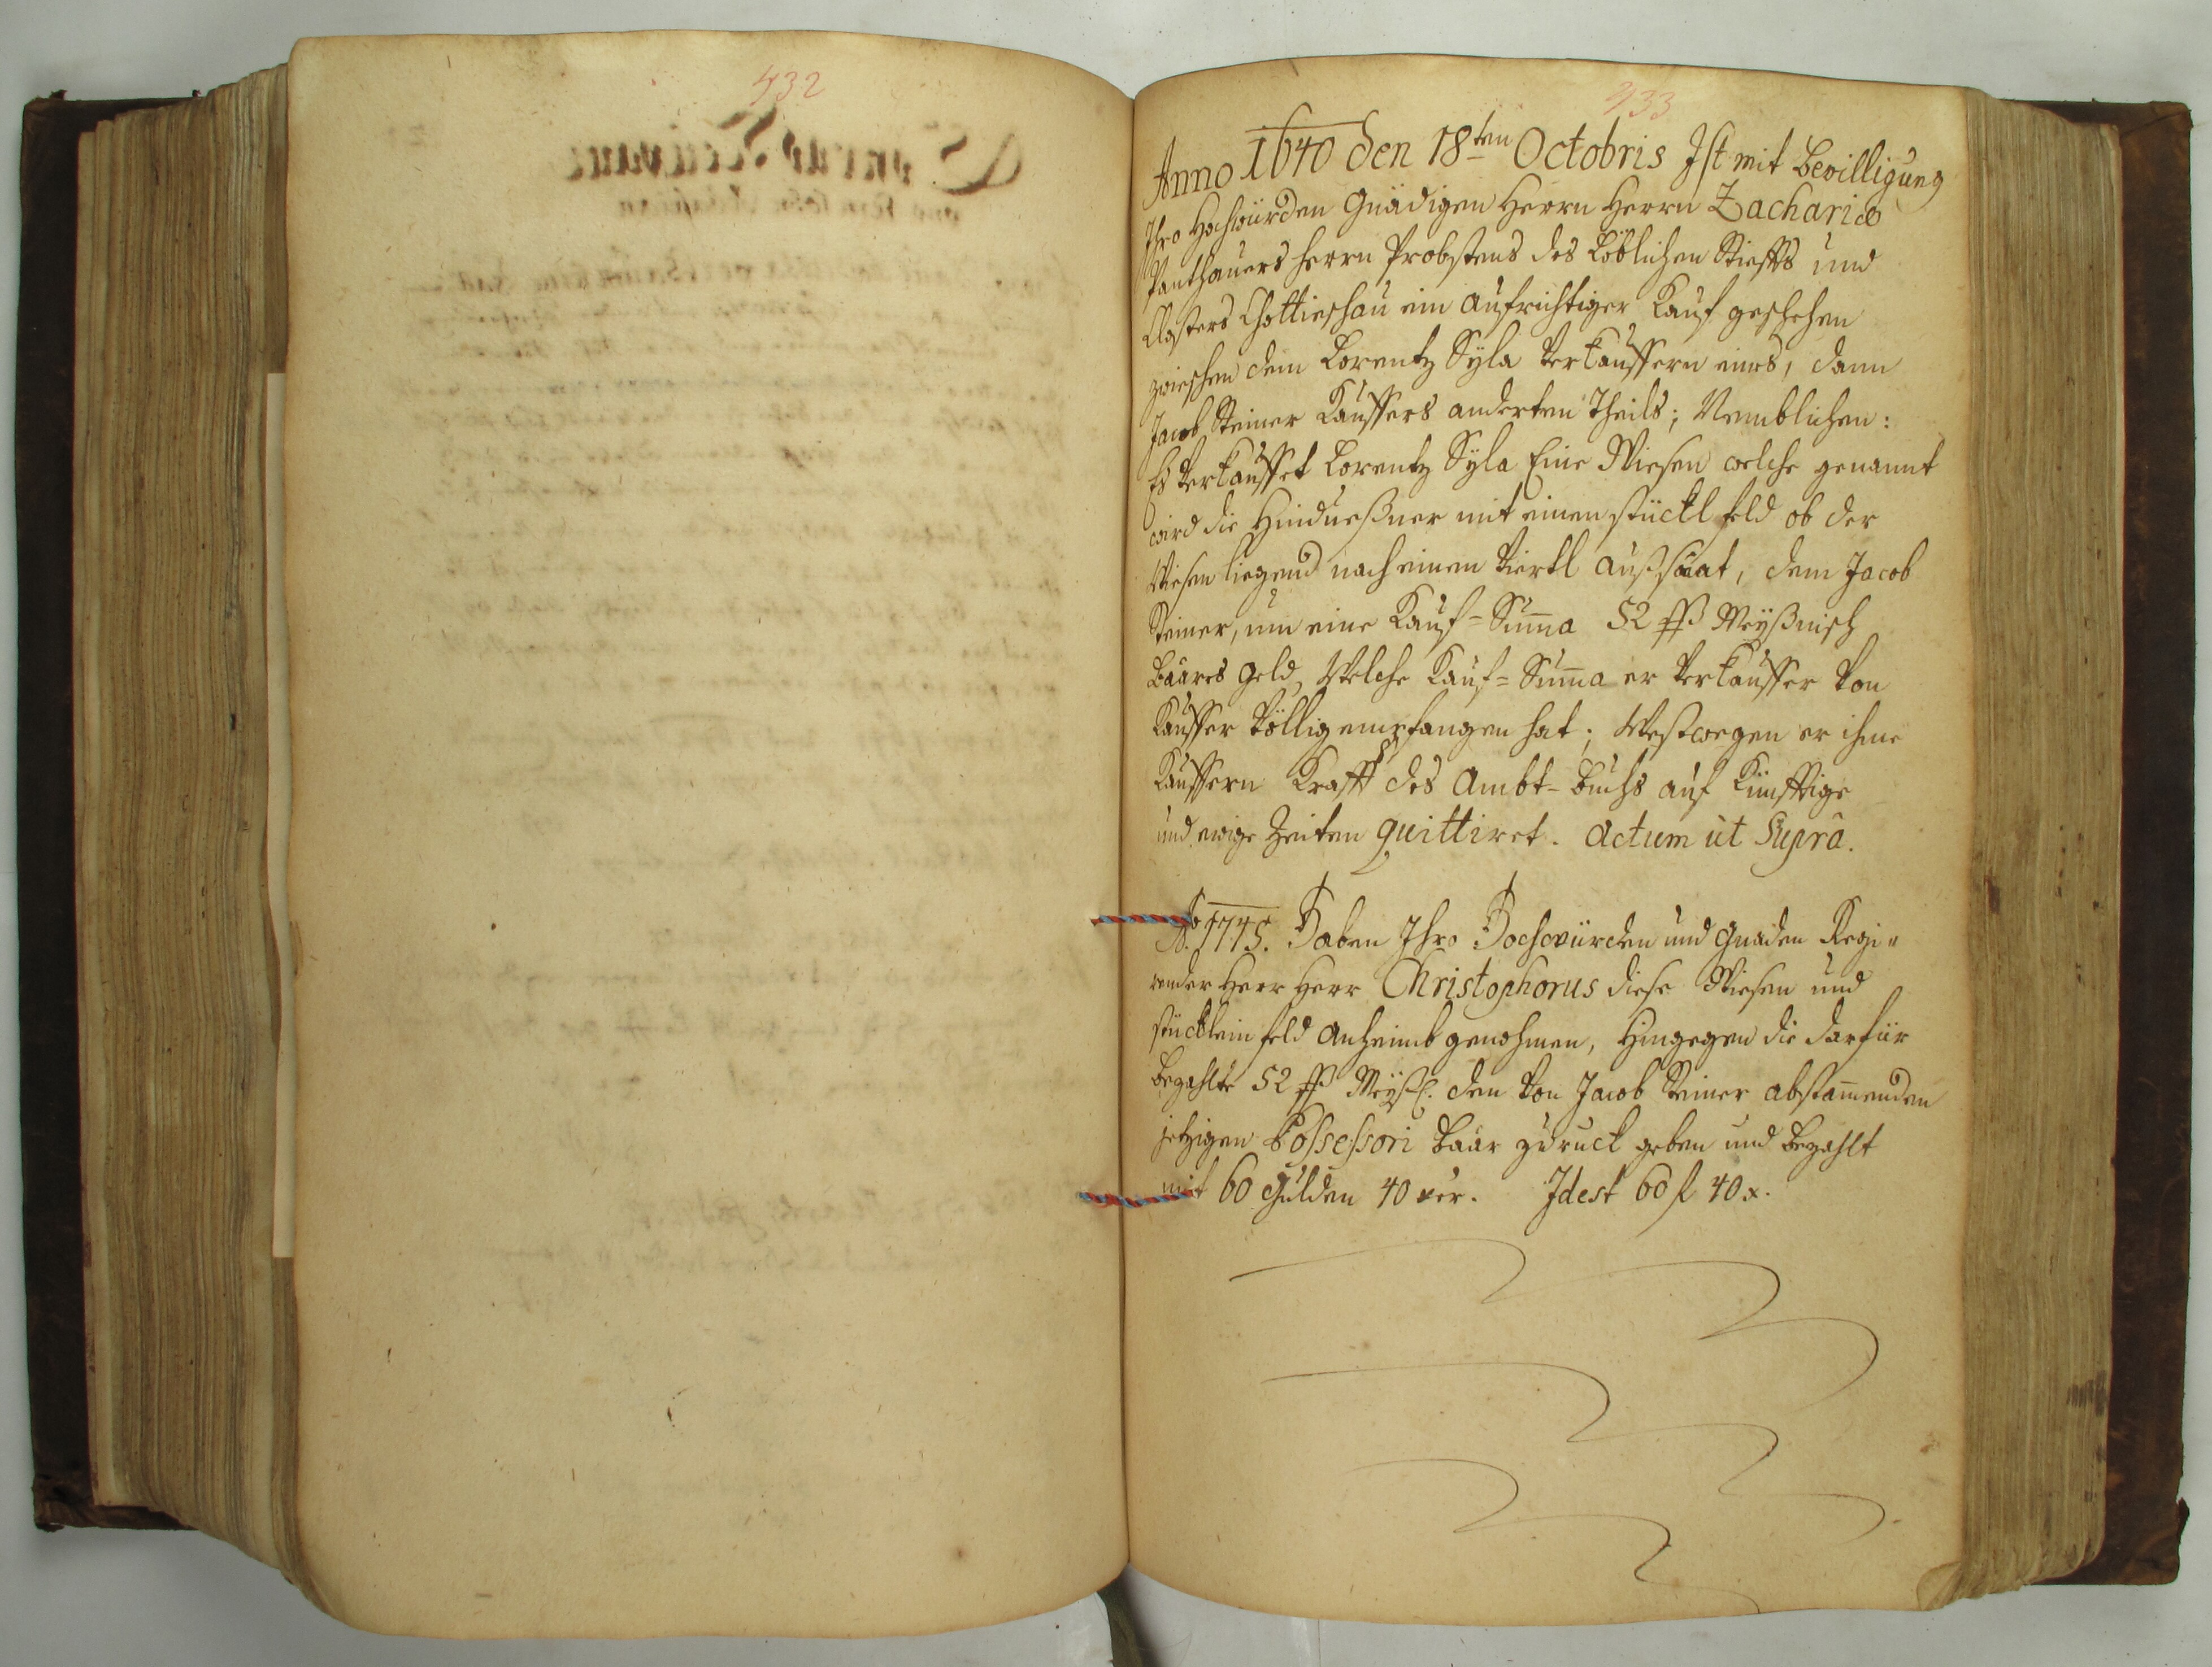 432
433
Anno 1640 den 18ten Octobris Ist mit Bewilligung
Ihro Hochwürden Gnädigen Herrn Herrn Zachariæ
Panthauers Herrn Probstens des Löblichen Stiffts und
Closters Chottieschau ein aufrichtiger Kauf geschehen
zwieschen dem Lorentz Syla Verkauffern eines, dann
Jacob Steiner Kauffers anderten Theils; Nemblichen:
Es Verkauffet Lorentz Syla Eine Wiesen welche genannt
wird die mit einen stückl feld ob der
Wiesen liegend nach einem Viertl außsaat, dem Jacob
Steiner, um eine Kauf-Suma 52 ßß Meÿßnisch
Baares geld, Welche Kauf-Suma er Verkauffer Von
Kauffer Völlig empfangen hat; Westwegen er ihme
Kauffern Krafft des Ambt-Buchs auf Künfftige
und ewige Zeiten quittiret. Actum ut Suprà.
Ao 1745. Haben Ihro Hochwürden und Gnaden Regi„
render Herr Herr Christophorus diese Wiesen und
stücklein feld anheimb genohmen, Hingegen die darfür
bezahlte 52 ßß Meÿß: den Von Jacob Steiner abstamenden
jetzigen Possessori Baar zuruck geben und bezahlt
mit 60 Gulden 40 xer. Idest 60 f 40 x.